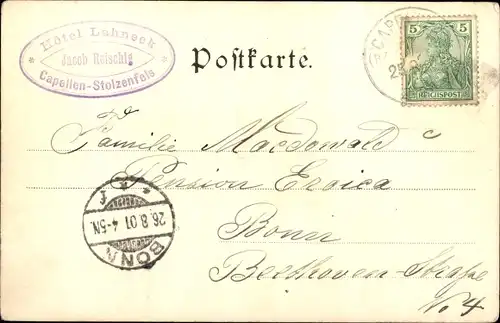 Hôtel Lahneck
Jacob Reischig
Capellen-Stolzenfels
Postkarte.
CAPE
25
5 5
REICHSPOST
Familie Macdowald
Pension Eroica
Bonn
Beethoven-Straße
No 4
26.8.01 4-5N.
BONN